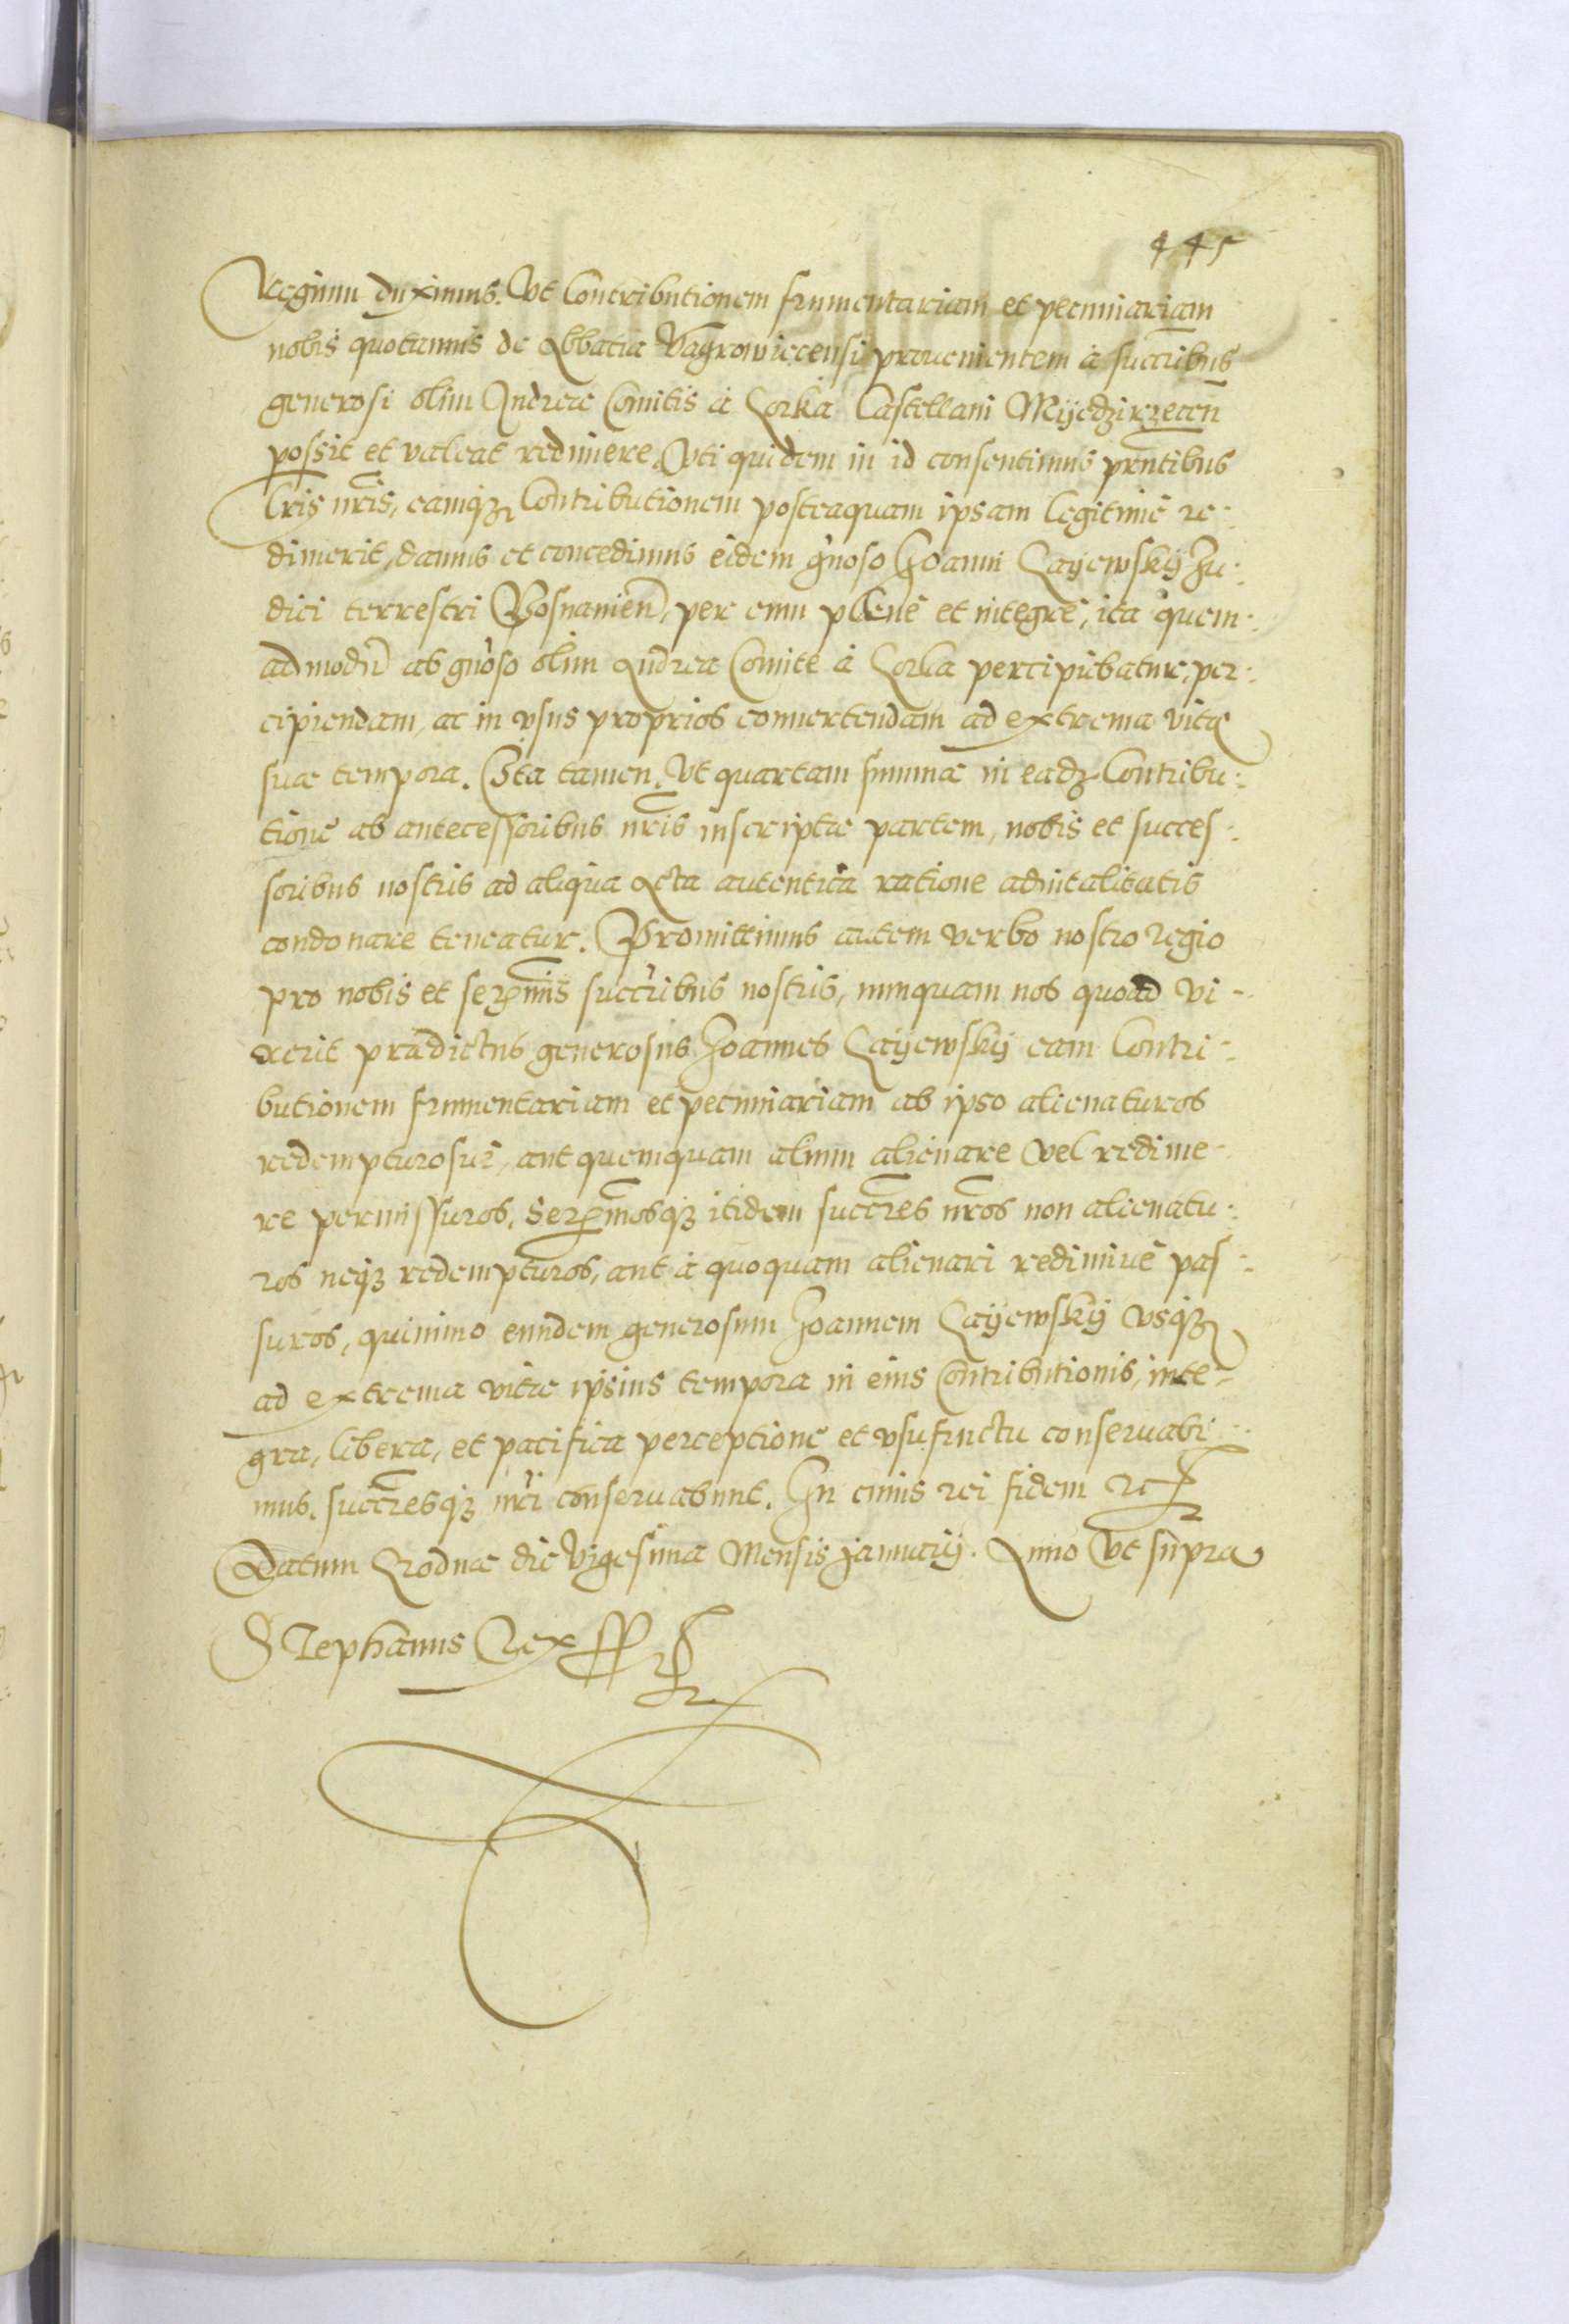 445
Regium duximus. Ut Contributionem frumentariam et pecuniariam
nobis quotannis de Abbatia Vagrowiecensi provenientem à succribus
generosi olim Andreæ Comitis à Gorka Castellani Myedzirzecen̄
possit et valeat redimere. Uti quidem in id consentimus prn̄tibus
Lr̄is nr̄is, eamq₃ Contributionem posteaquam ipsam legitime re-
dimerit, damus et concedimus eidem gn̄oso Joanni Gayewsky Ju-
dici terrestri Posnanien̄, per eum plene et integre, ita quem-
admodū ab gn̄oso olim Andrea Comite à Gorka percipiebatur, per-
cipiendam, ac in usus proprios convertendam ad extrema vitæ
suæ tempora. Ita tamen, Ut quartam summæ in eadₓ Contribu-
tione ab antecessoribus nr̄is inscriptæ partem, nobis et succes-
soribus nostris ad aliqua Acta autentica ratione advitalitatis
condonare teneatur. Promittimus autem verbo nostro regio
pro nobis et serenmis̄ succribus nostris, nunquam nos quoad vi-
xerit prædictus generosus Joannes Gayewsky eam Contri-
butionem frumentariam et pecuniariam ab ipso alienaturos
redempturosve, aut quemquam alium alienare vel redime-
re permissuros. Serenmosq₃ itidem succr̄es nr̄os non alienatu-
ros neq₃ redempturos, aut à quoquam alienari redimive pas-
suros, quinimo eundem generosum Joannem Gayewsky usq₃
ad extrema vitæ ipsius tempora in eius Contributionis, inte-
gra, libera, et pacifica perceptione et usufructu conservabi-
mus, succr̄esq₃ nr̄i conservabunt. In cuius rei fidem etc
Datum Grodnæ die Vigesima Mensis Januarij. Anno Ut supra
Stephanus Rex ss